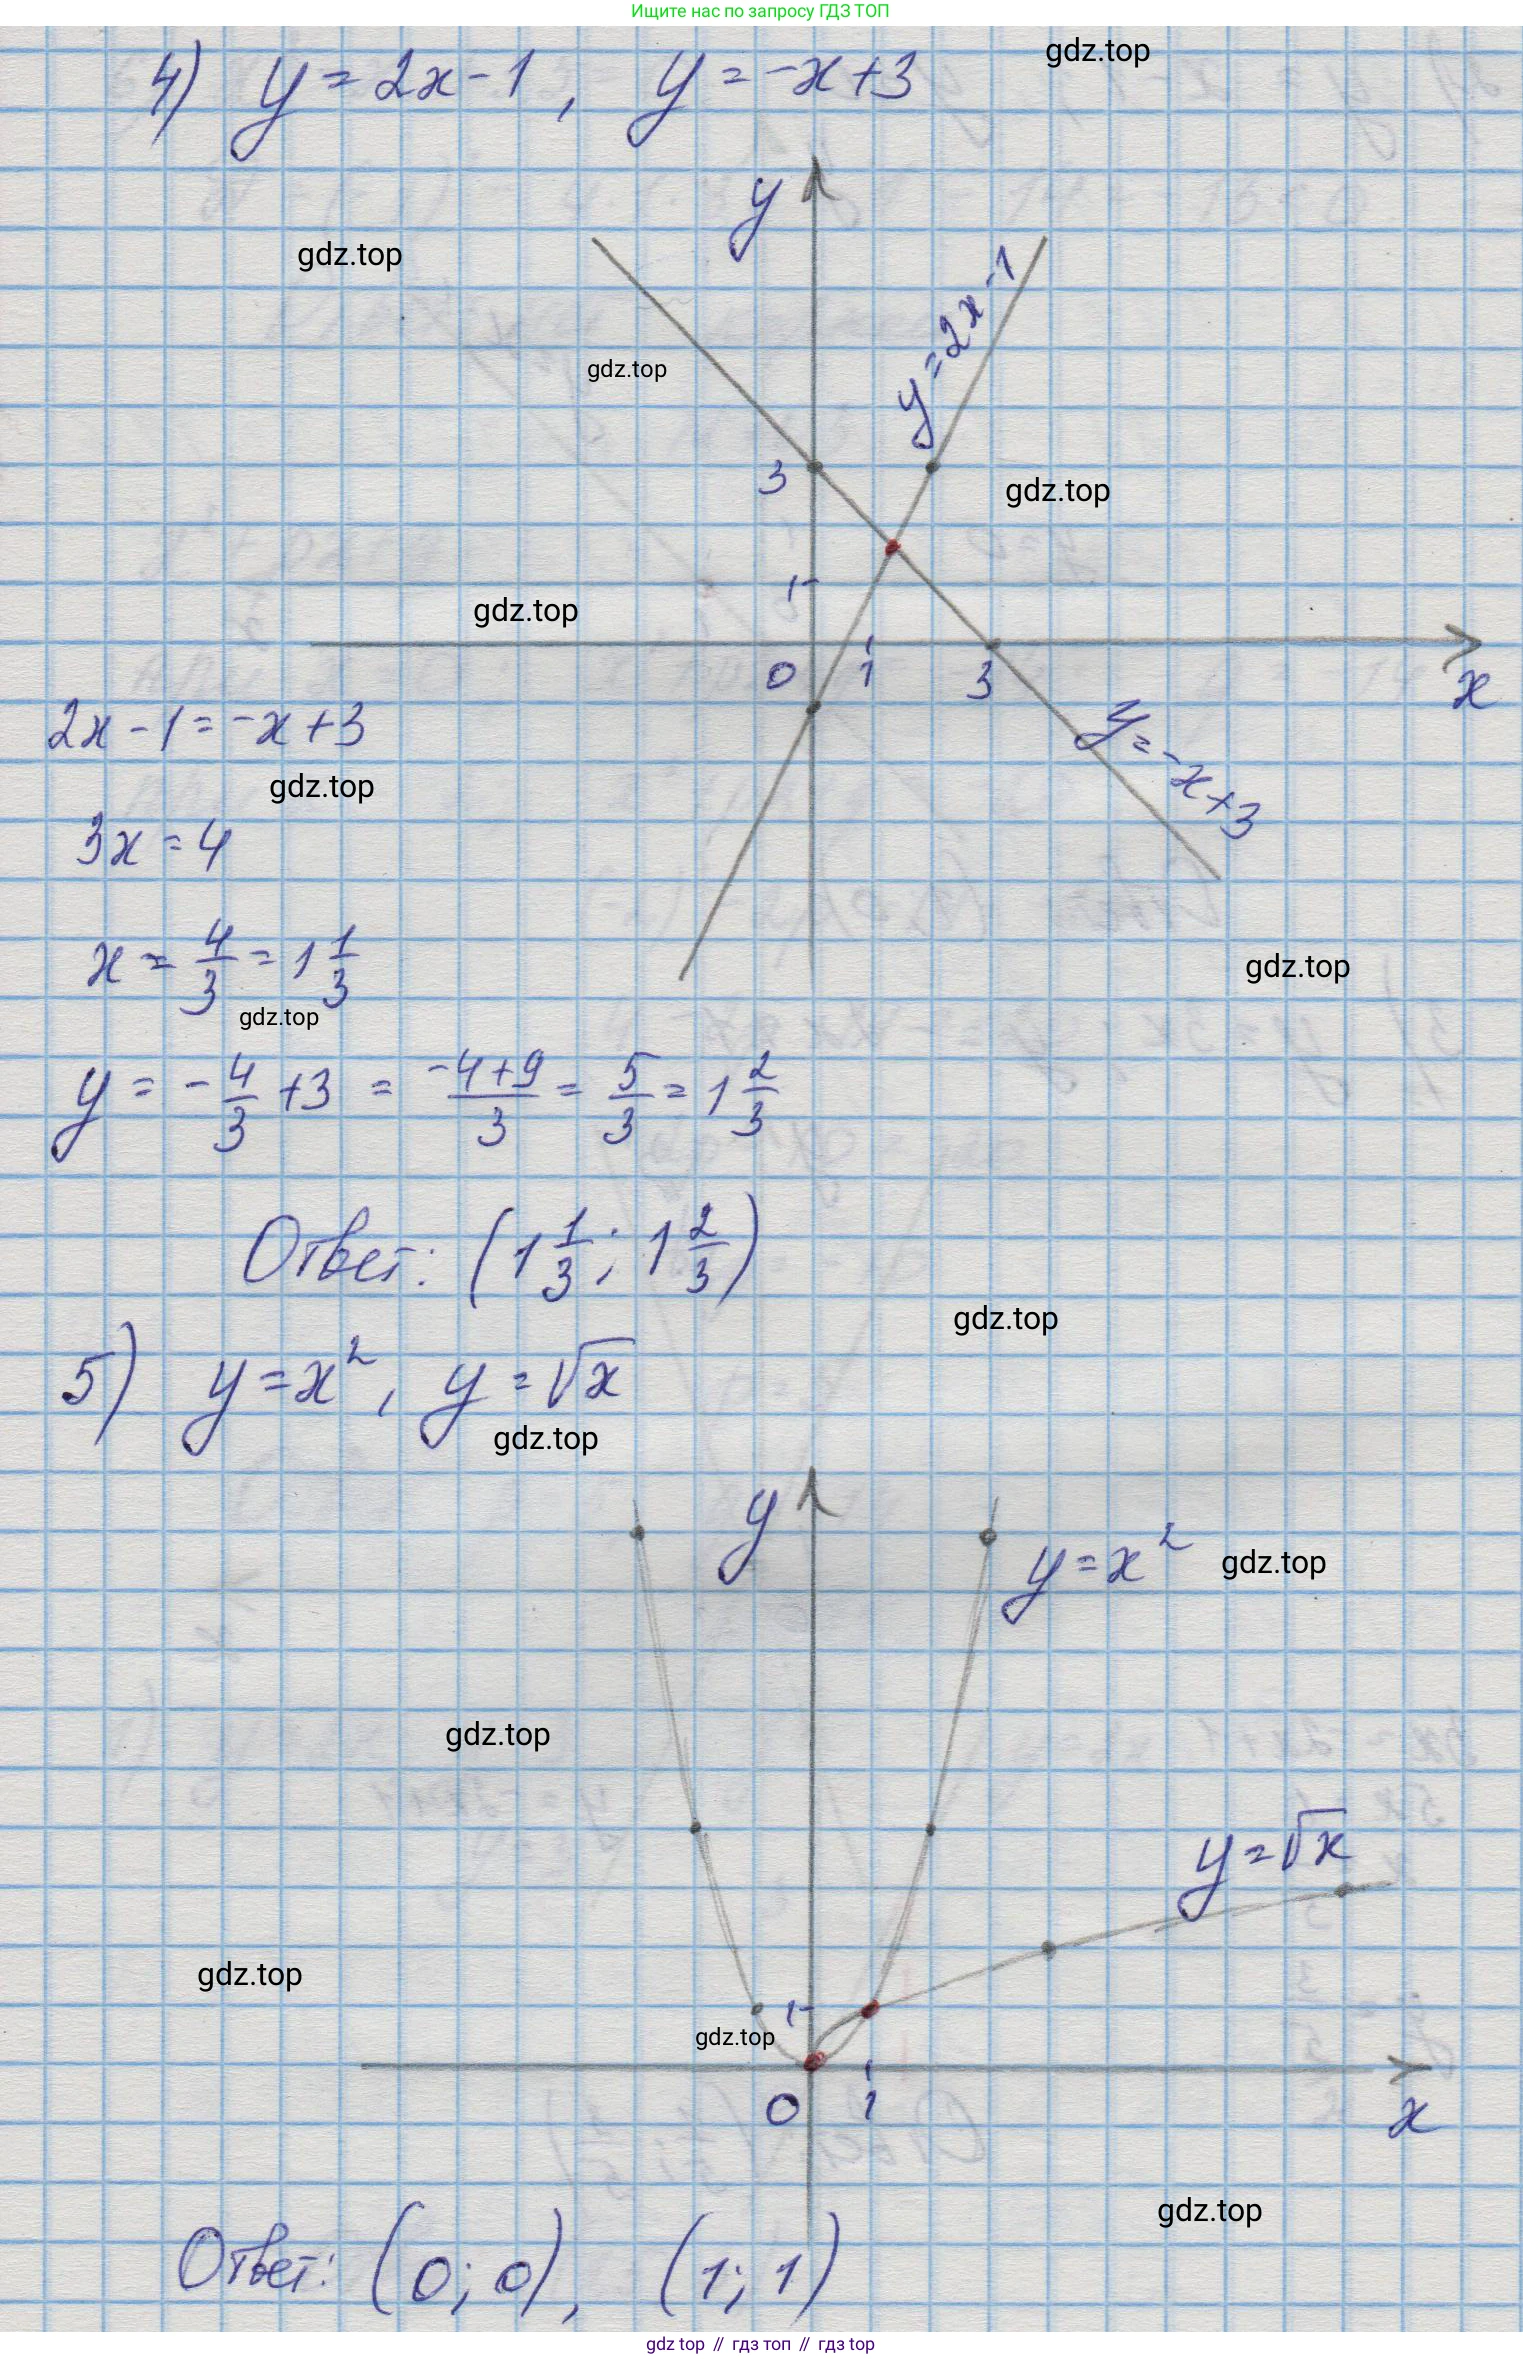 Ищите нас по запросу ГДЗ ТОП
4) y = 2x - 1, y = -x + 3
gdz.top
y
gdz.top
y = 2x - 1
gdz.top
3
gdz.top
1
gdz.top
0 1 3
x
2x - 1 = -x + 3
y = -x + 3
gdz.top
3x = 4
x = 4/3 = 1 1/3
gdz.top
gdz.top
y = -4/3 + 3 = (-4+9)/3 = 5/3 = 1 2/3
Ответ: (1 1/3; 1 2/3)
gdz.top
5) y = x², y = √x
gdz.top
y
y = x²
gdz.top
gdz.top
y = √x
gdz.top
1
gdz.top
0 1
x
gdz.top
Ответ: (0; 0), (1; 1)
gdz top // гдз топ // гдз top